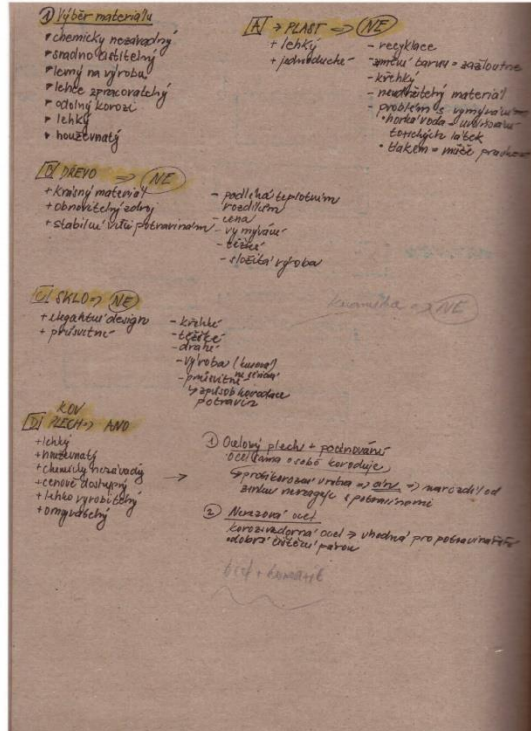 ① Výběr materiálu
• chemicky nezávadný
• snadno čistitelný
• levný na výrobu
• lehce zpracovatelný
• odolný korozi
• lehký
• houževnatý
A → PLAST ⇒ NE
+ lehký
+ jednoduché
- recyklace
- změna barvy = zažloutne
- křehký
- neudržitelný materiál
- problém s vymýváním
• horká voda → uvolňování
toxických látek
• tlakem = může prasknout
B DŘEVO ⇒ NE
+ krásný materiál
+ obnovitelný zdroj
+ stabilní vůči potravinám
- podléhá teplotním
rozdílům
- cena
- vymývání
- těžké
- složitá výroba
C SKLO → NE
+ elegantní design
+ průsvitné
- křehké
- těžké
- drahé
- výroba
- průsvitné
způsob korodace
potravin
keramika → NE
KOV
D PLECH → ANO
+ lehký
+ houževnatý
+ chemicky nezávadný
+ cenově dostupný
+ lehko vyrobitelný
+ omyvatelný
→
① Ocelový plech + pocínování
ocel sama o sobě koroduje,
protikorozní vrstva ⇒ cín ⇒ narozdíl od
zinku nereaguje s potravinami
② Nerezová ocel
korozivzdorná ocel → vhodná pro potravinářství
dobrá čištění párou